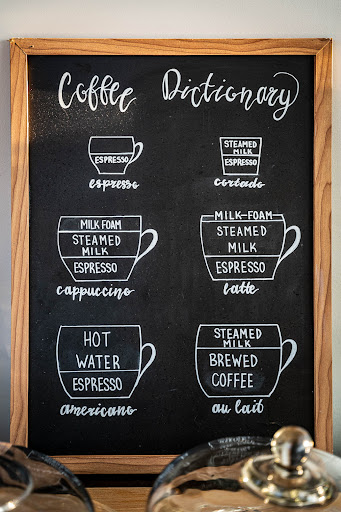 Coffee Dictionary
ESPRESSO
espresso
STEAMED
MILK
ESPRESSO
cortado
MILK FOAM
STEAMED
MILK
ESPRESSO
cappuccino
MILK FOAM
STEAMED
MILK
ESPRESSO
latte
HOT
WATER
ESPRESSO
americano
STEAMED
MILK
BREWED
COFFEE
au lait